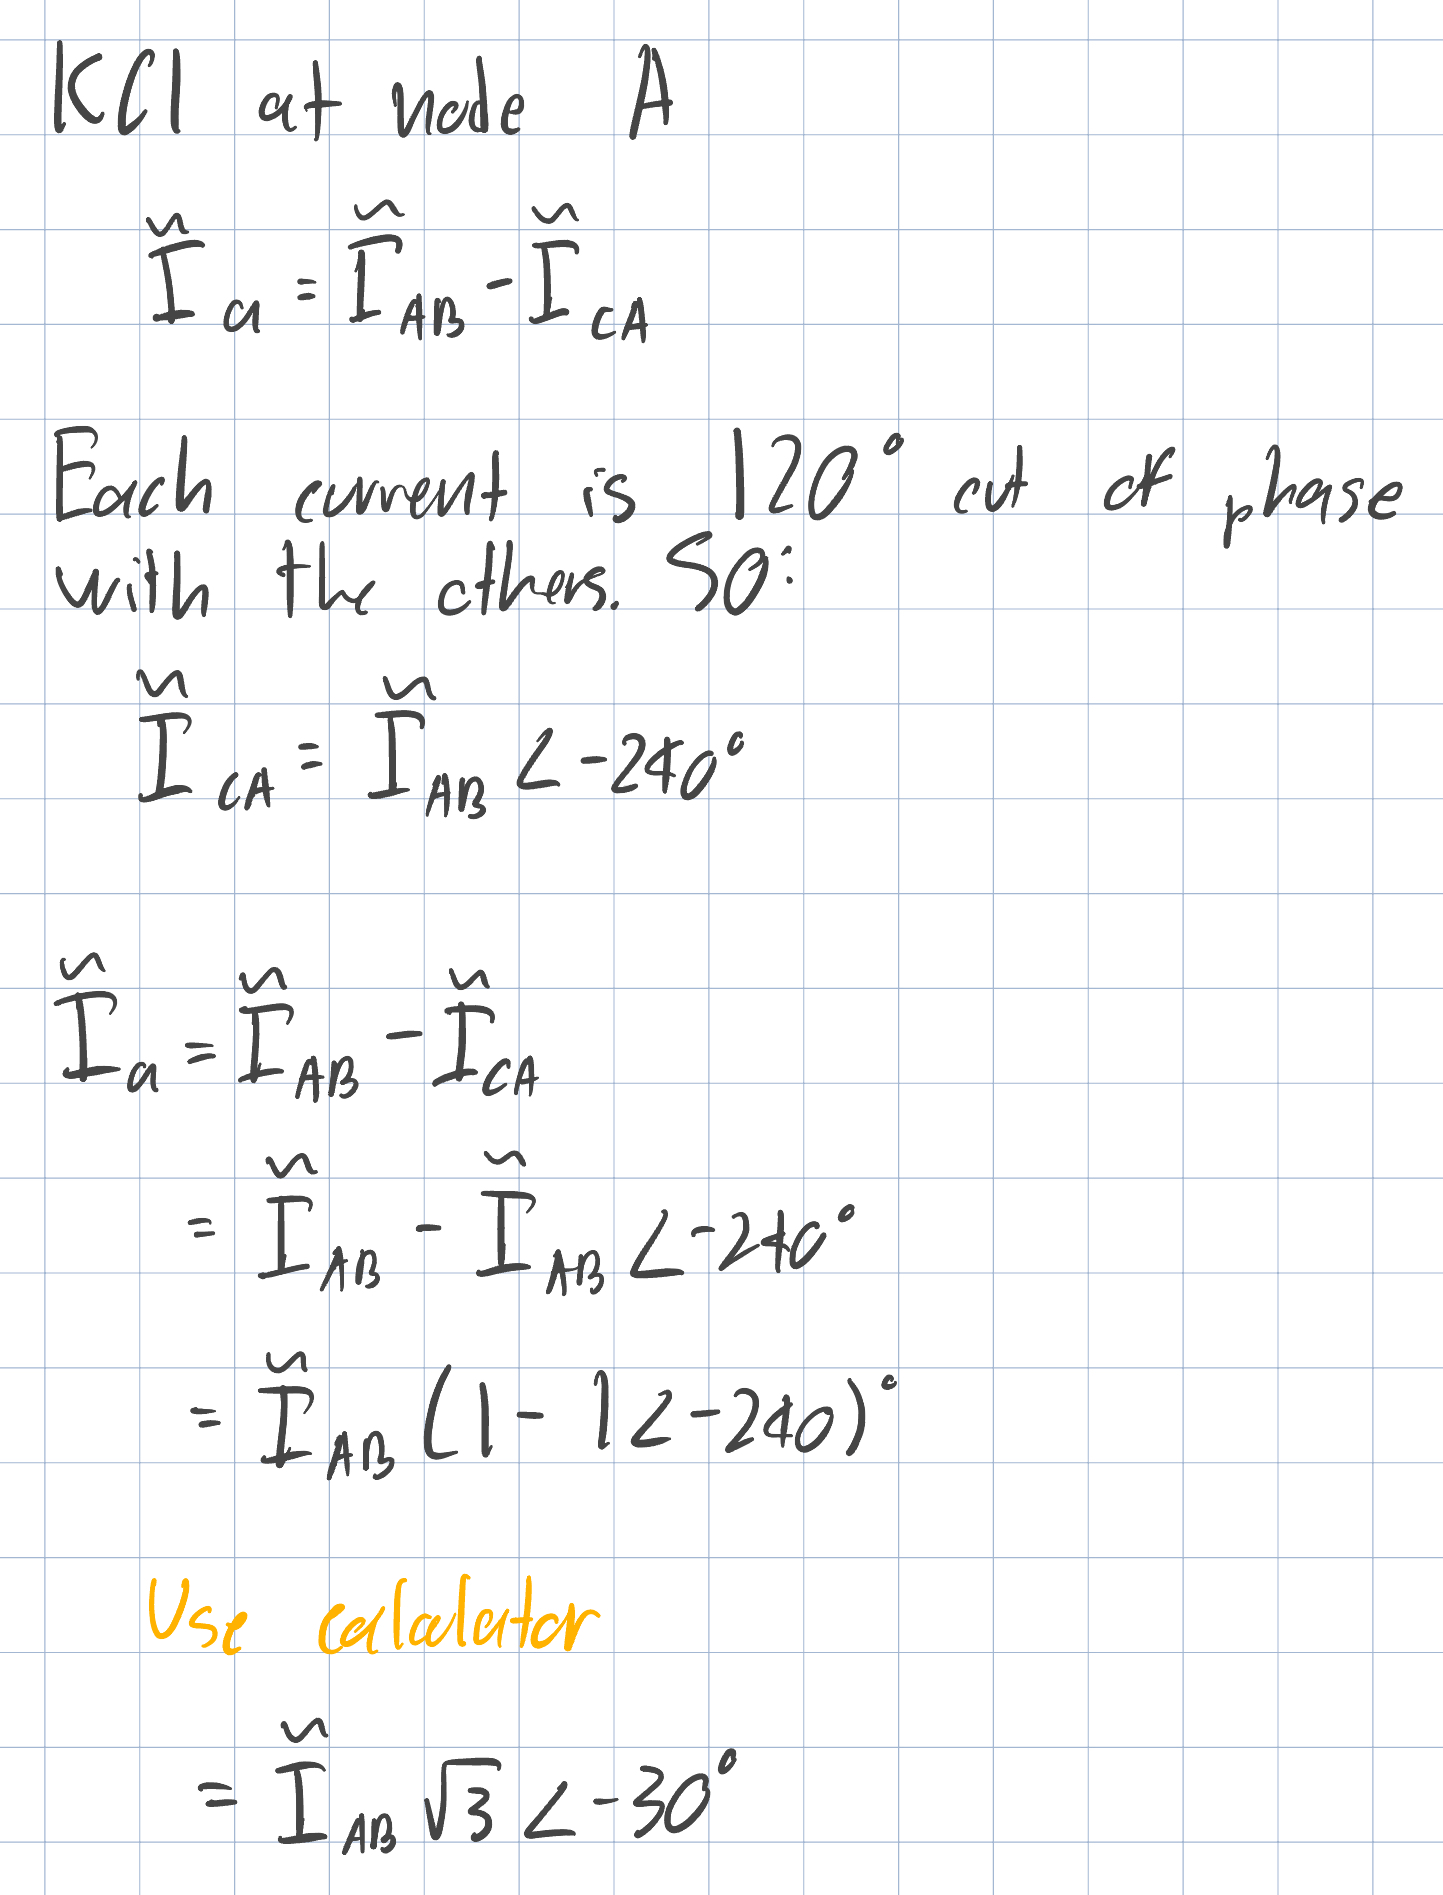 KCl at node A
Ĩ_a = Ĩ_AB - Ĩ_CA
Each current is 120° out of phase
with the others. So:
Ĩ_CA = Ĩ_AB ∠-240°
Ĩ_a = Ĩ_AB - Ĩ_CA
= Ĩ_AB - Ĩ_AB ∠-240°
= Ĩ_AB (1 - 1∠-240)°
Use calculator
= Ĩ_AB √3 ∠-30°